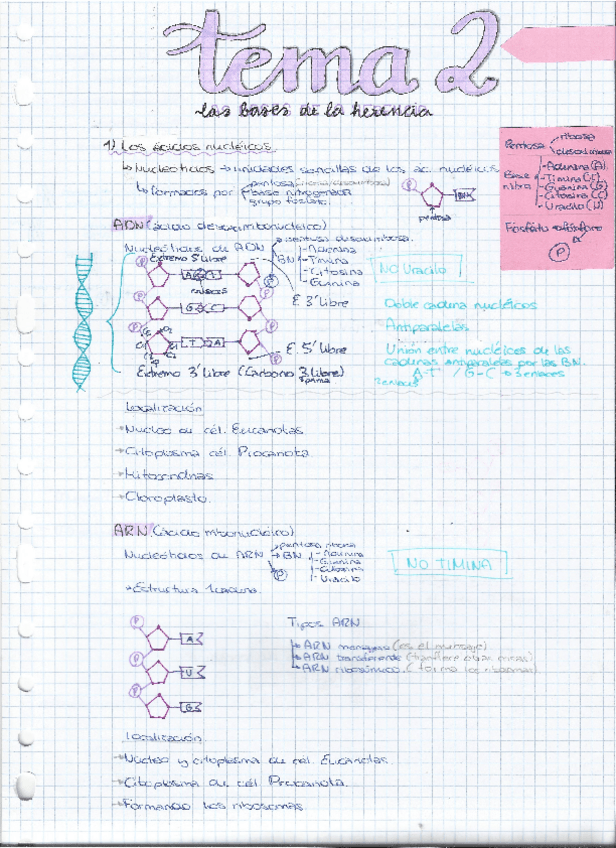 tema 2
las bases de la herencia
1) Los ácidos nucléicos
Nucleótidos → unidades sencillas de los ac. nucléicos
Formados por
pentosa (ribosa/desoxirribosa)
base nitrogenada
grupo fosfato
P
BN
pentosa
Pentosa
ribosa
desoxirribosa
Base nitro.
- Adenina (A)
- Timina (T)
- Guanina (G)
- Citosina (C)
- Uracilo (U)
Fosfato
fósforo
P
ADN (ácido desoxirribonucleico)
Nucleótidos de ADN
pentosa desoxirribosa.
BN
- Adenina
- Timina
- Citosina
- Guanina
P
NO Uracilo
Extremo 5' Libre
A
T
enlaces
E. 3' Libre
G
C
T
A
E. 5' Libre
Extremo 3' Libre (Carbono 3 Libre)
Doble cadena nucléicos
Antiparalelas
Unión entre nucléicos de las
cadenas antiparalelas por las BN.
A-T / G-C → 3 enlaces
2 enlaces
Localización
→ Núcleo de cél. Eucariotas
→ Citoplasma cél. Procariota
→ Mitocondrias
→ Cloroplasto.
ARN (ácido ribonucleico)
Nucleótidos de ARN
pentosa ribosa
→ BN
- Adenina
- Guanina
- Citosina
- Uracilo
P
NO TIMINA
→ Estructura 1 cadena.
P
A
P
U
P
G
Tipos ARN
ARN mensajero (es el mensaje)
ARN transferente
ARN ribosómico. (forma los ribosomas)
Localización
→ Núcleo y citoplasma de cél. Eucariotas
→ Citoplasma de cél. Procariota.
→ Formando los ribosomas